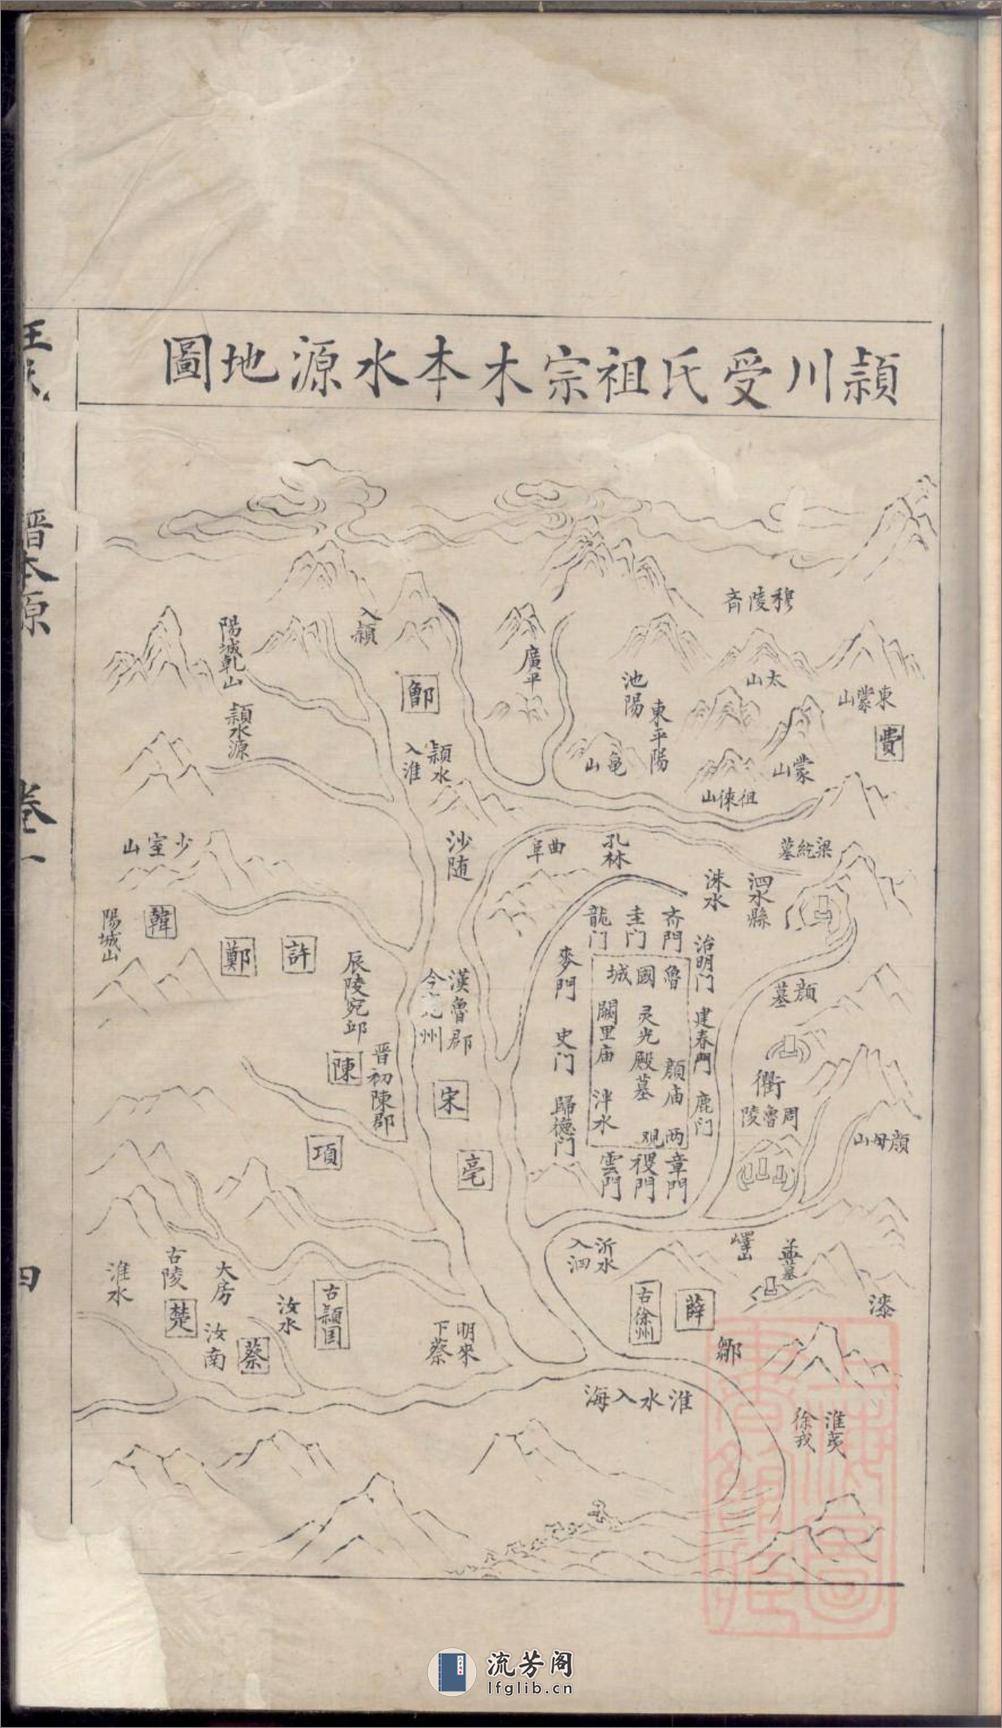 潁川受氏祖宗木本水源地圖
穆陵斉
太山
東蒙山
費
蒙山
徂徠山
東平陽
池陽
龜山
廣平
入潁
鄫
陽城乾山
潁水源
潁水
入淮
少室山
陽城山
韓
鄭
許
沙随
曲阜
孔林
梁紇墓
泗水縣
洙水
斉門
圭门
龍门
麥門
史门
歸德门
治明门
建春門
鹿门
魯國城
灵光殿墓
闕里庙
泮水
顔庙
两观
章門
稷門
雲門
顔墓
衢
周魯陵
顔母山
漢魯郡
今兗州
宋
亳
辰陵宛邱
陳
晋初陳郡
項
沂水
入泗
嶧山
孟墓
漆
古徐州
薛
鄒
淮水
古陵
楚
大房
汝南
蔡
汝水
古潁国
明來
下蔡
淮水入海
淮夷
徐戎
晋本源
卷一
四
流芳阁
lfglib.cn